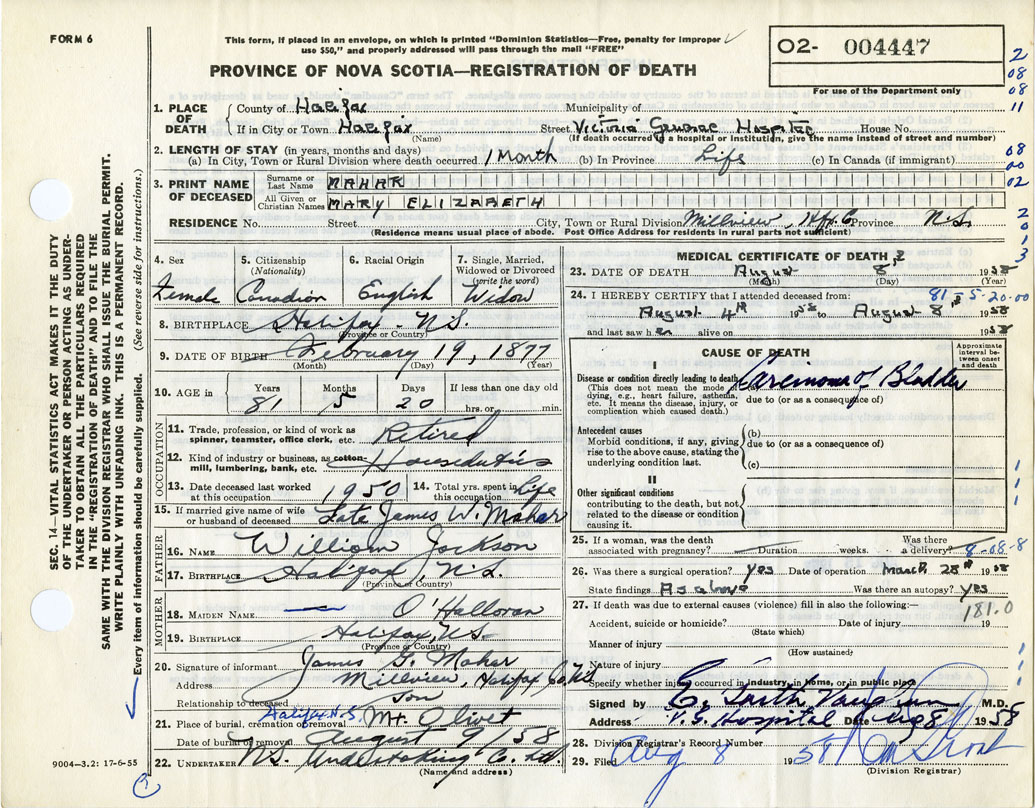 FORM 6
This form, if placed in an envelope, on which is printed "Dominion Statistics—Free, penalty for improper
use $50," and properly addressed will pass through the mail "FREE"
O2- 004447
PROVINCE OF NOVA SCOTIA—REGISTRATION OF DEATH
For use of the Department only
2
08
08
11
08
00
02
2
0
1
3
1. PLACE OF DEATH
County of Halifax Municipality of
If in City or Town Halifax Street Victoria General Hospital House No.
(Name) (If death occurred in hospital or institution, give the name instead of street and number)
2. LENGTH OF STAY (in years, months and days)
(a) In City, Town or Rural Division where death occurred 1 Month (b) In Province Life (c) In Canada (if immigrant)
3. PRINT NAME OF DECEASED
Surname or Last Name MAHAR
All Given or Christian Names MARY ELIZABETH
RESIDENCE No. Street City, Town or Rural Division Millview, Hfx Co Province N.S.
(Residence means usual place of abode. Post Office Address for residents in rural parts not sufficient)
4. Sex
Female
5. Citizenship
(Nationality)
Canadian
6. Racial Origin
English
7. Single, Married, Widowed or Divorced
(write the word)
Widow
8. BIRTHPLACE Halifax - N.S.
(Province or Country)
9. DATE OF BIRTH February 19, 1877
(Month) (Day) (Year)
10. AGE in
Years Months Days If less than one day old
81 5 20 hrs. or min.
OCCUPATION
11. Trade, profession, or kind of work as
spinner, teamster, office clerk, etc. Retired
12. Kind of industry or business, as cotton-
mill, lumbering, bank, etc. Houseduties
13. Date deceased last worked
at this occupation 1950
14. Total yrs. spent in
this occupation Life
15. If married give name of wife
or husband of deceased Late James W. Mahar
FATHER
16. NAME William Jackson
17. BIRTHPLACE Halifax, N.S.
(Province or Country)
MOTHER
18. MAIDEN NAME — O'Halloran
19. BIRTHPLACE Halifax, N.S.
(Province or Country)
20. Signature of informant James G. Mahar
Address Millview, Halifax Co. N.S.
Relationship to deceased Son
21. Place of burial, cremation or removal Halifax N.S. Mt. Olivet
Date of burial or removal August 9/58
22. UNDERTAKER N.S. Undertaking Co. Ltd.
(Name and address)
MEDICAL CERTIFICATE OF DEATH
23. DATE OF DEATH August 8 1958
(Month) (Day) (Year)
24. I HEREBY CERTIFY that I attended deceased from: 81-5-20-00
August 4th 1958 to August 8th 1958
and last saw her alive on 1958
CAUSE OF DEATH
Approximate interval between onset and death
I
Disease or condition directly leading to death (a) Carcinoma of Bladder
(This does not mean the mode of
dying, e.g., heart failure, asthenia,
etc. It means the disease, injury, or
complication which caused death.)
due to (or as a consequence of)
Antecedent causes
Morbid conditions, if any, giving
rise to the above cause, stating the
underlying condition last.
(b)
due to (or as a consequence of)
(c)
II
Other significant conditions
contributing to the death, but not
related to the disease or condition
causing it.
25. If a woman, was the death
associated with pregnancy? Duration weeks. Was there a delivery?
8-08-8
26. Was there a surgical operation? Yes Date of operation March 28th 1958
State findings As above Was there an autopsy? Yes
27. If death was due to external causes (violence) fill in also the following:—
181.0
Accident, suicide or homicide? Date of injury 19
(State which)
Manner of injury
(How sustained)
Nature of injury
Specify whether injury occurred in industry, in home, or in public place
Signed by M.D.
Address V.G. Hospital Date Aug 8 1958
28. Division Registrar's Record Number
29. Filed Aug 8 1958
(Division Registrar)
SEC. 14—VITAL STATISTICS ACT MAKES IT THE DUTY
OF THE UNDERTAKER OR PERSON ACTING AS UNDER-
TAKER TO OBTAIN ALL THE PARTICULARS REQUIRED
IN THE "REGISTRATION OF DEATH" AND TO FILE THE
SAME WITH THE DIVISION REGISTRAR WHO SHALL ISSUE THE BURIAL PERMIT.
WRITE PLAINLY WITH UNFADING INK. THIS IS A PERMANENT RECORD.
Every item of information should be carefully supplied. (See reverse side for instructions.)
9004-3.2: 17-6-55